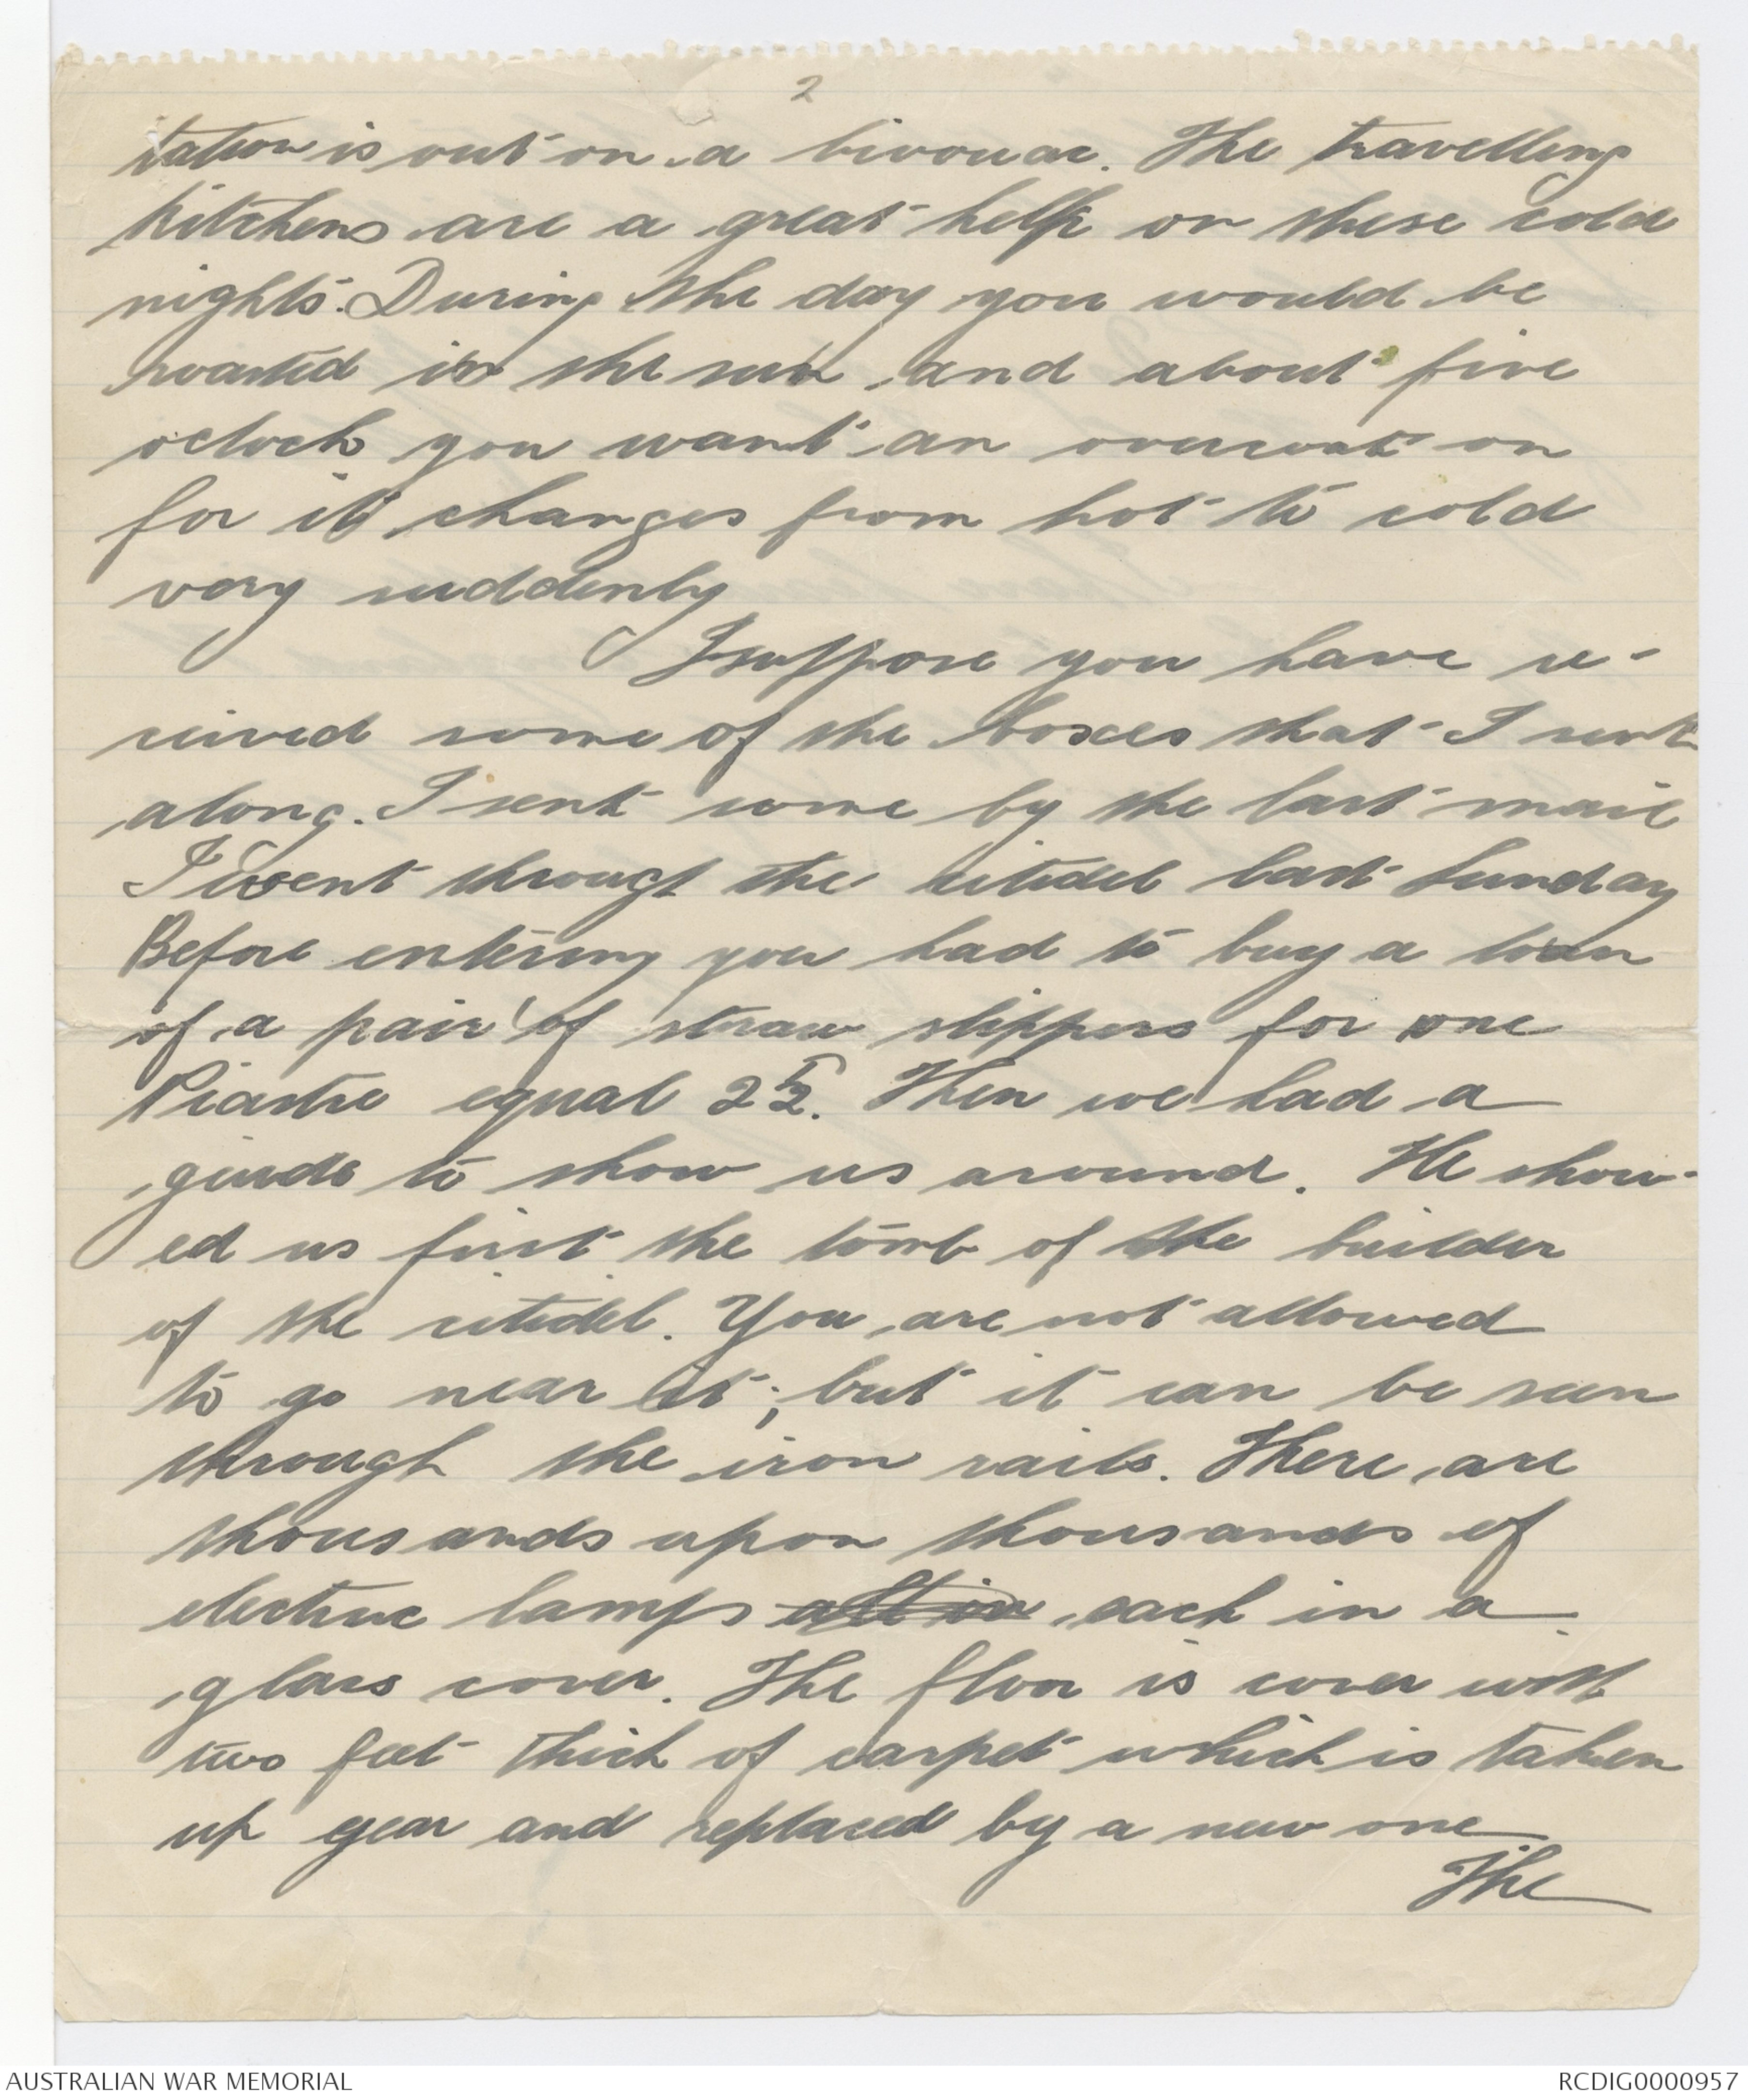 2
tation is out on a bivouac. The travelling
kitchens are a great help on these cold
nights. During the day you would be
roasted in the sun and about five
oclock you want an overcoat on
for it changes from hot to cold
very suddenly
I suppose you have re-
ceived some of the boxes that I sent
along. I sent some by the last mail
I went through the citidel last Sunday
Before entering you had to buy a loan
of a pair of straw slippers for one
Piastre equal 2½. Then we had a
guide to show us around. He show-
ed us first the tomb of the builder
of the citidel. You are not allowed
to go near it; but it can be seen
through the iron rails. There are
thousands upon thousands of
electric lamps all in each in a
glass cover. The floor is cover with
two feet thick of carpet which is taken
up year and replaced by a new one
The
AUSTRALIAN WAR MEMORIAL
RCDIG0000957